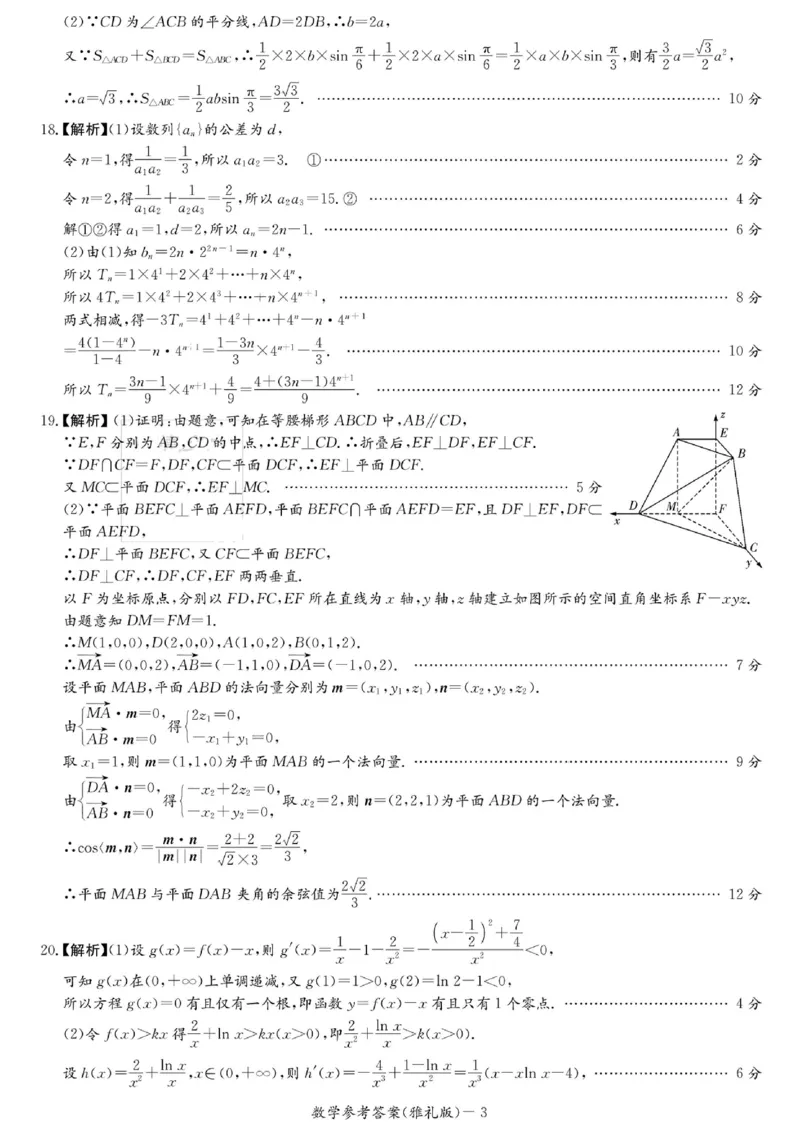 (2)∵CD为∠ACB的平分线,AD=2DB,∴b=2a,
又∵S△ACD+S△BCD=S△ABC,∴1/2×2×b×sin π/6+1/2×2×a×sin π/6=1/2×a×b×sin π/3,则有3/2a=√3/2a²,
∴a=√3,∴S△ABC=1/2absin π/3=3√3/2. …… 10分
18.【解析】(1)设数列{aₙ}的公差为d,
令n=1,得1/a₁a₂=1/3,所以a₁a₂=3. ①…… 2分
令n=2,得1/a₁a₂+1/a₂a₃=2/5,所以a₂a₃=15.② …… 4分
解①②得a₁=1,d=2,所以aₙ=2n-1. …… 6分
(2)由(1)知bₙ=2n·2²ⁿ⁻¹=n·4ⁿ,
所以Tₙ=1×4¹+2×4²+…+n×4ⁿ,
所以4Tₙ=1×4²+2×4³+…+n×4ⁿ⁺¹, …… 8分
两式相减,得-3Tₙ=4¹+4²+…+4ⁿ-n·4ⁿ⁺¹
=4(1-4ⁿ)/(1-4)-n·4ⁿ⁺¹=(1-3n)/3×4ⁿ⁺¹-4/3. …… 10分
所以Tₙ=(3n-1)/9×4ⁿ⁺¹+4/9=(4+(3n-1)4ⁿ⁺¹)/9. …… 12分
19.【解析】(1)证明:由题意,可知在等腰梯形ABCD中,AB∥CD,
∵E,F分别为AB,CD的中点,∴EF⊥CD.∴折叠后,EF⊥DF,EF⊥CF.
∵DF∩CF=F,DF,CF⊂平面DCF,∴EF⊥平面DCF.
又MC⊂平面DCF,∴EF⊥MC. …… 5分
(2)∵平面BEFC⊥平面AEFD,平面BEFC∩平面AEFD=EF,且DF⊥EF,DF⊂
平面AEFD,
∴DF⊥平面BEFC,又CF⊂平面BEFC,
∴DF⊥CF,∴DF,CF,EF两两垂直.
z
A
E
B
D
M
F
x
C
y
以F为坐标原点,分别以FD,FC,EF所在直线为x轴,y轴,z轴建立如图所示的空间直角坐标系F-xyz.
由题意知DM=FM=1.
∴M(1,0,0),D(2,0,0),A(1,0,2),B(0,1,2).
∴MA→=(0,0,2),AB→=(-1,1,0),DA→=(-1,0,2). …… 7分
设平面MAB,平面ABD的法向量分别为m=(x₁,y₁,z₁),n=(x₂,y₂,z₂).
由{MA→·m=0, AB→·m=0 得{2z₁=0, -x₁+y₁=0,
取x₁=1,则m=(1,1,0)为平面MAB的一个法向量. …… 9分
由{DA→·n=0, AB→·n=0 得{-x₂+2z₂=0, -x₂+y₂=0, 取x₂=2,则n=(2,2,1)为平面ABD的一个法向量.
∴cos⟨m,n⟩=m·n/|m||n|=(2+2)/(√2×3)=2√2/3,
∴平面MAB与平面DAB夹角的余弦值为2√2/3. …… 12分
20.【解析】(1)设g(x)=f(x)-x,则g′(x)=1/x-1-2/x²=-((x-1/2)²+7/4)/x²<0,
可知g(x)在(0,+∞)上单调递减,又g(1)=1>0,g(2)=ln 2-1<0,
所以方程g(x)=0有且仅有一个根,即函数y=f(x)-x有且只有1个零点. …… 4分
(2)令f(x)>kx得2/x+ln x>kx(x>0),即2/x²+ln x/x>k(x>0).
设h(x)=2/x²+ln x/x,x∈(0,+∞),则h′(x)=-4/x³+(1-ln x)/x²=1/x³(x-xln x-4), …… 6分
数学参考答案(雅礼版)-3